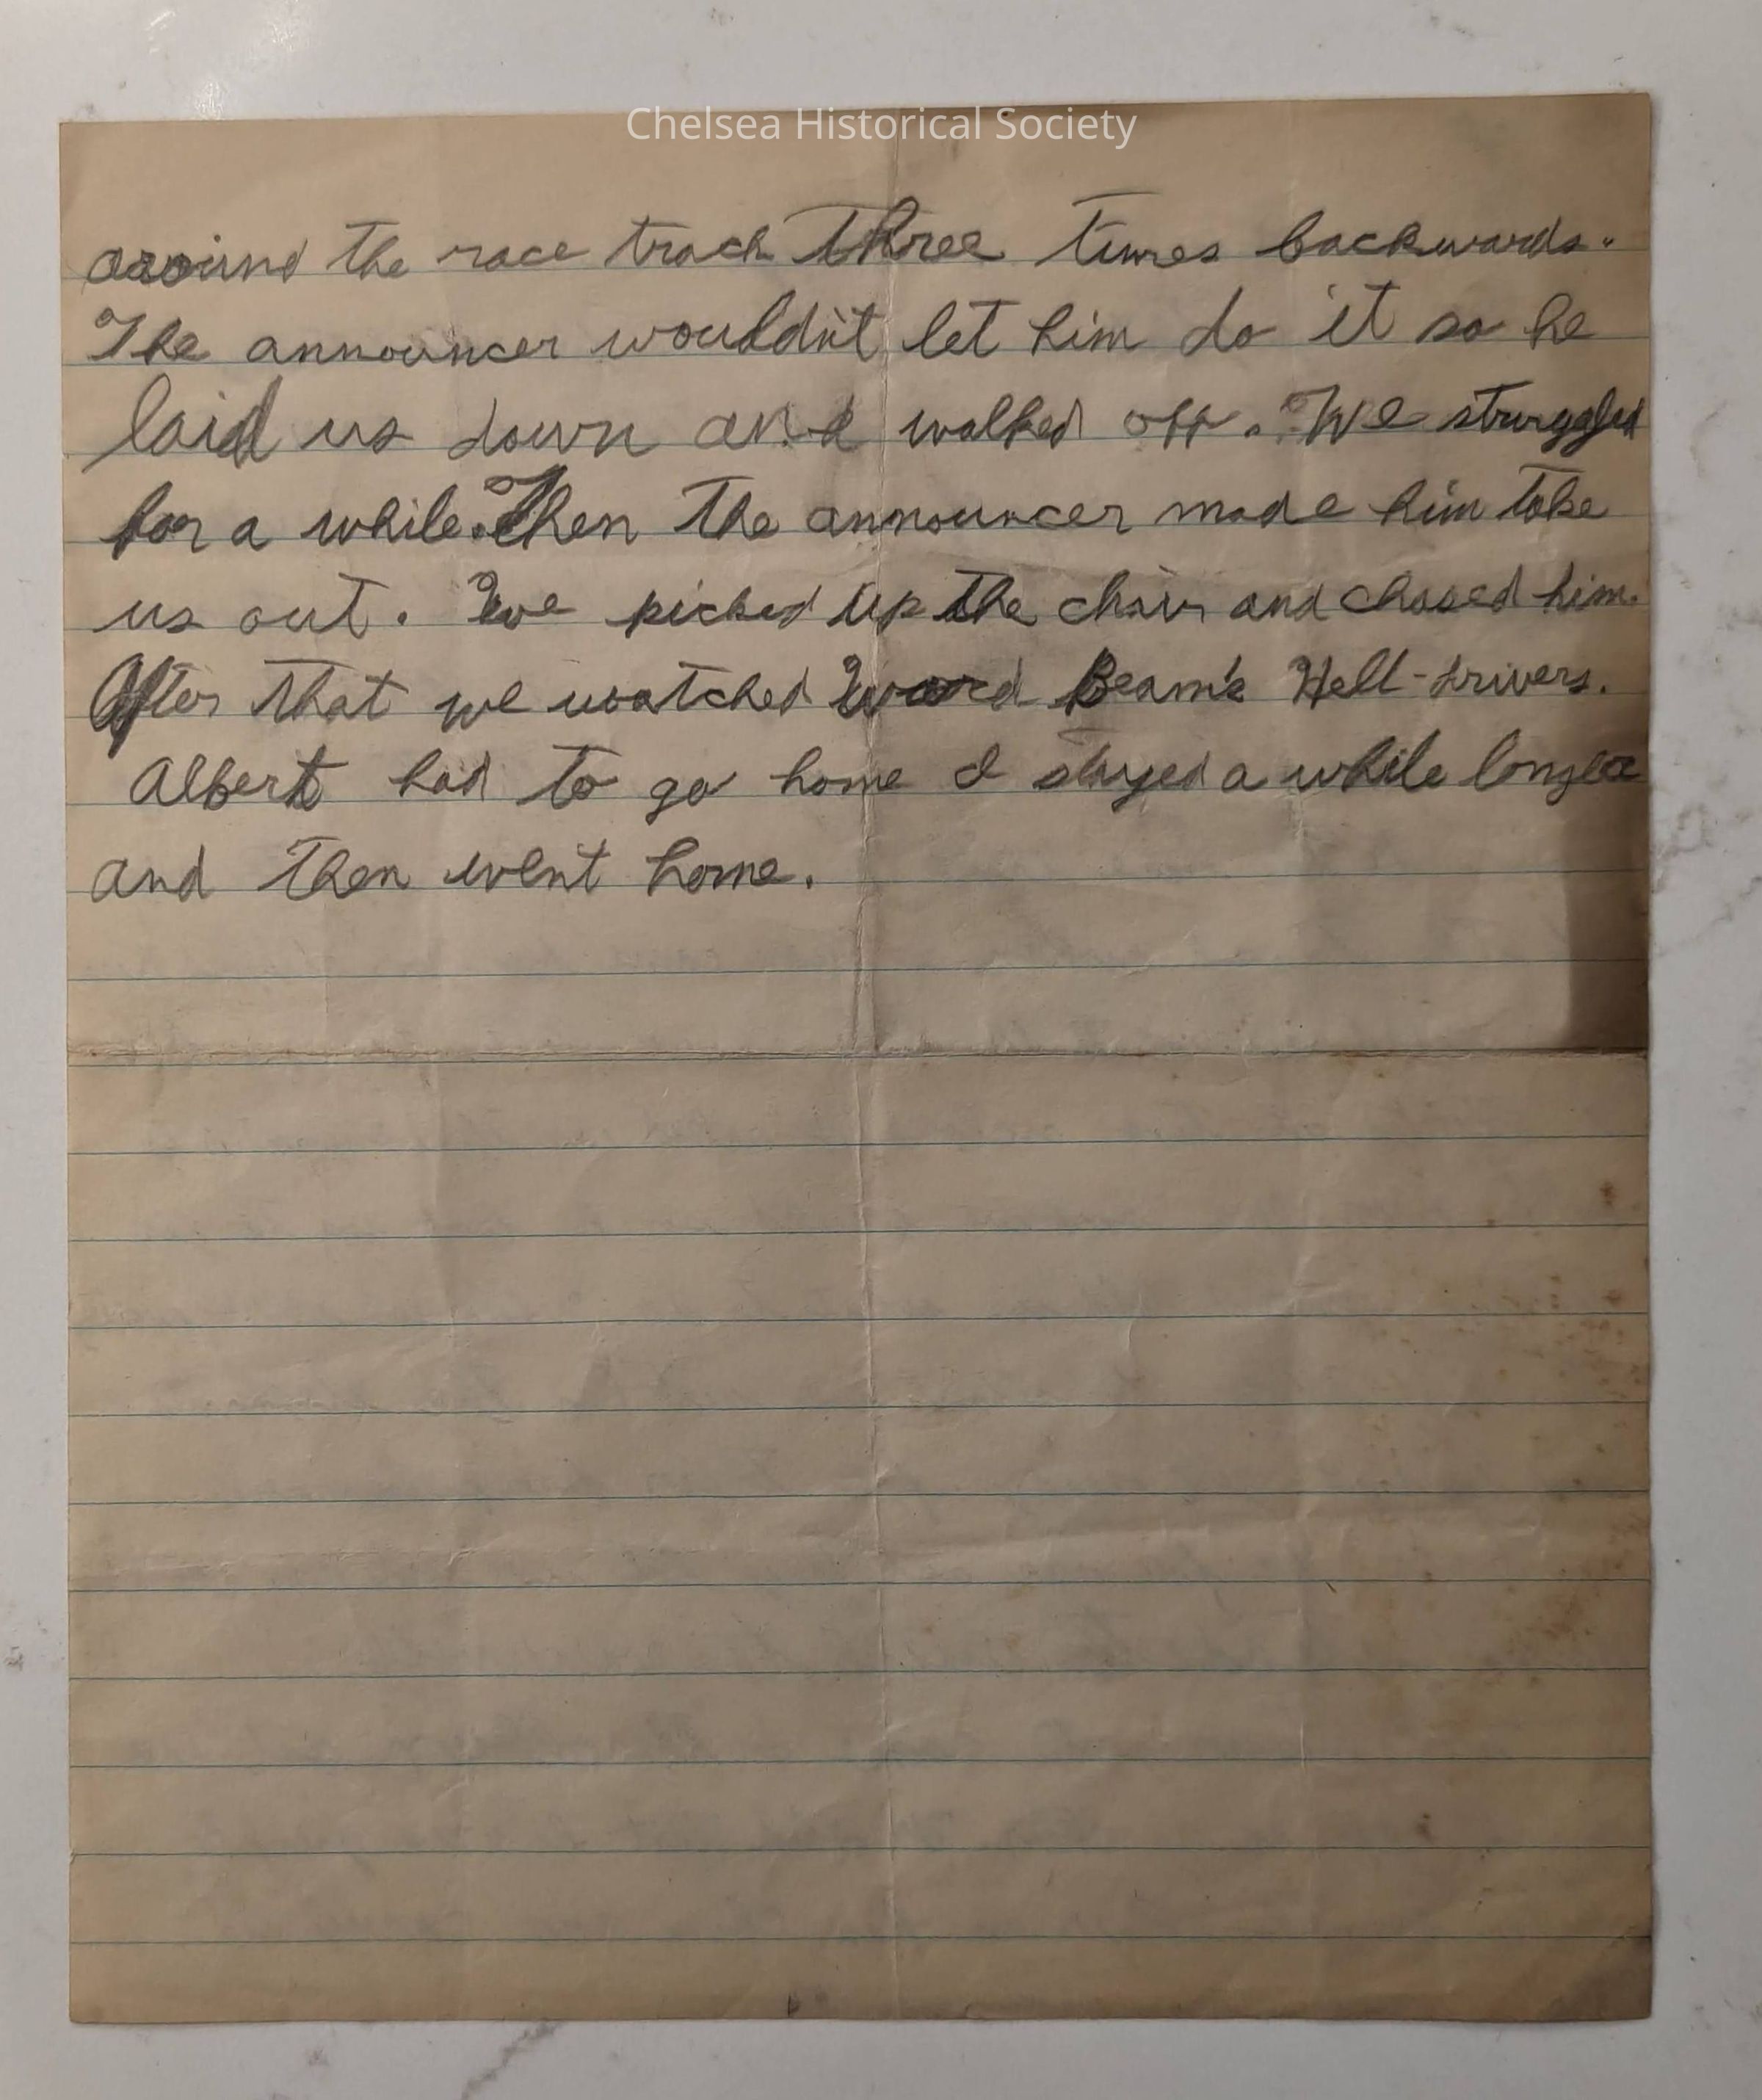 Chelsea Historical Society
around the race track three times backwards.
The announcer wouldn't let him do it so he
laid us down and walked off. We struggled
for a while. Then the announcer made him take
us out. We picked up the chair and chased him.
After that we watched Ward Beam's Hell-drivers.
Albert had to go home I stayed a while longer
and then went home.